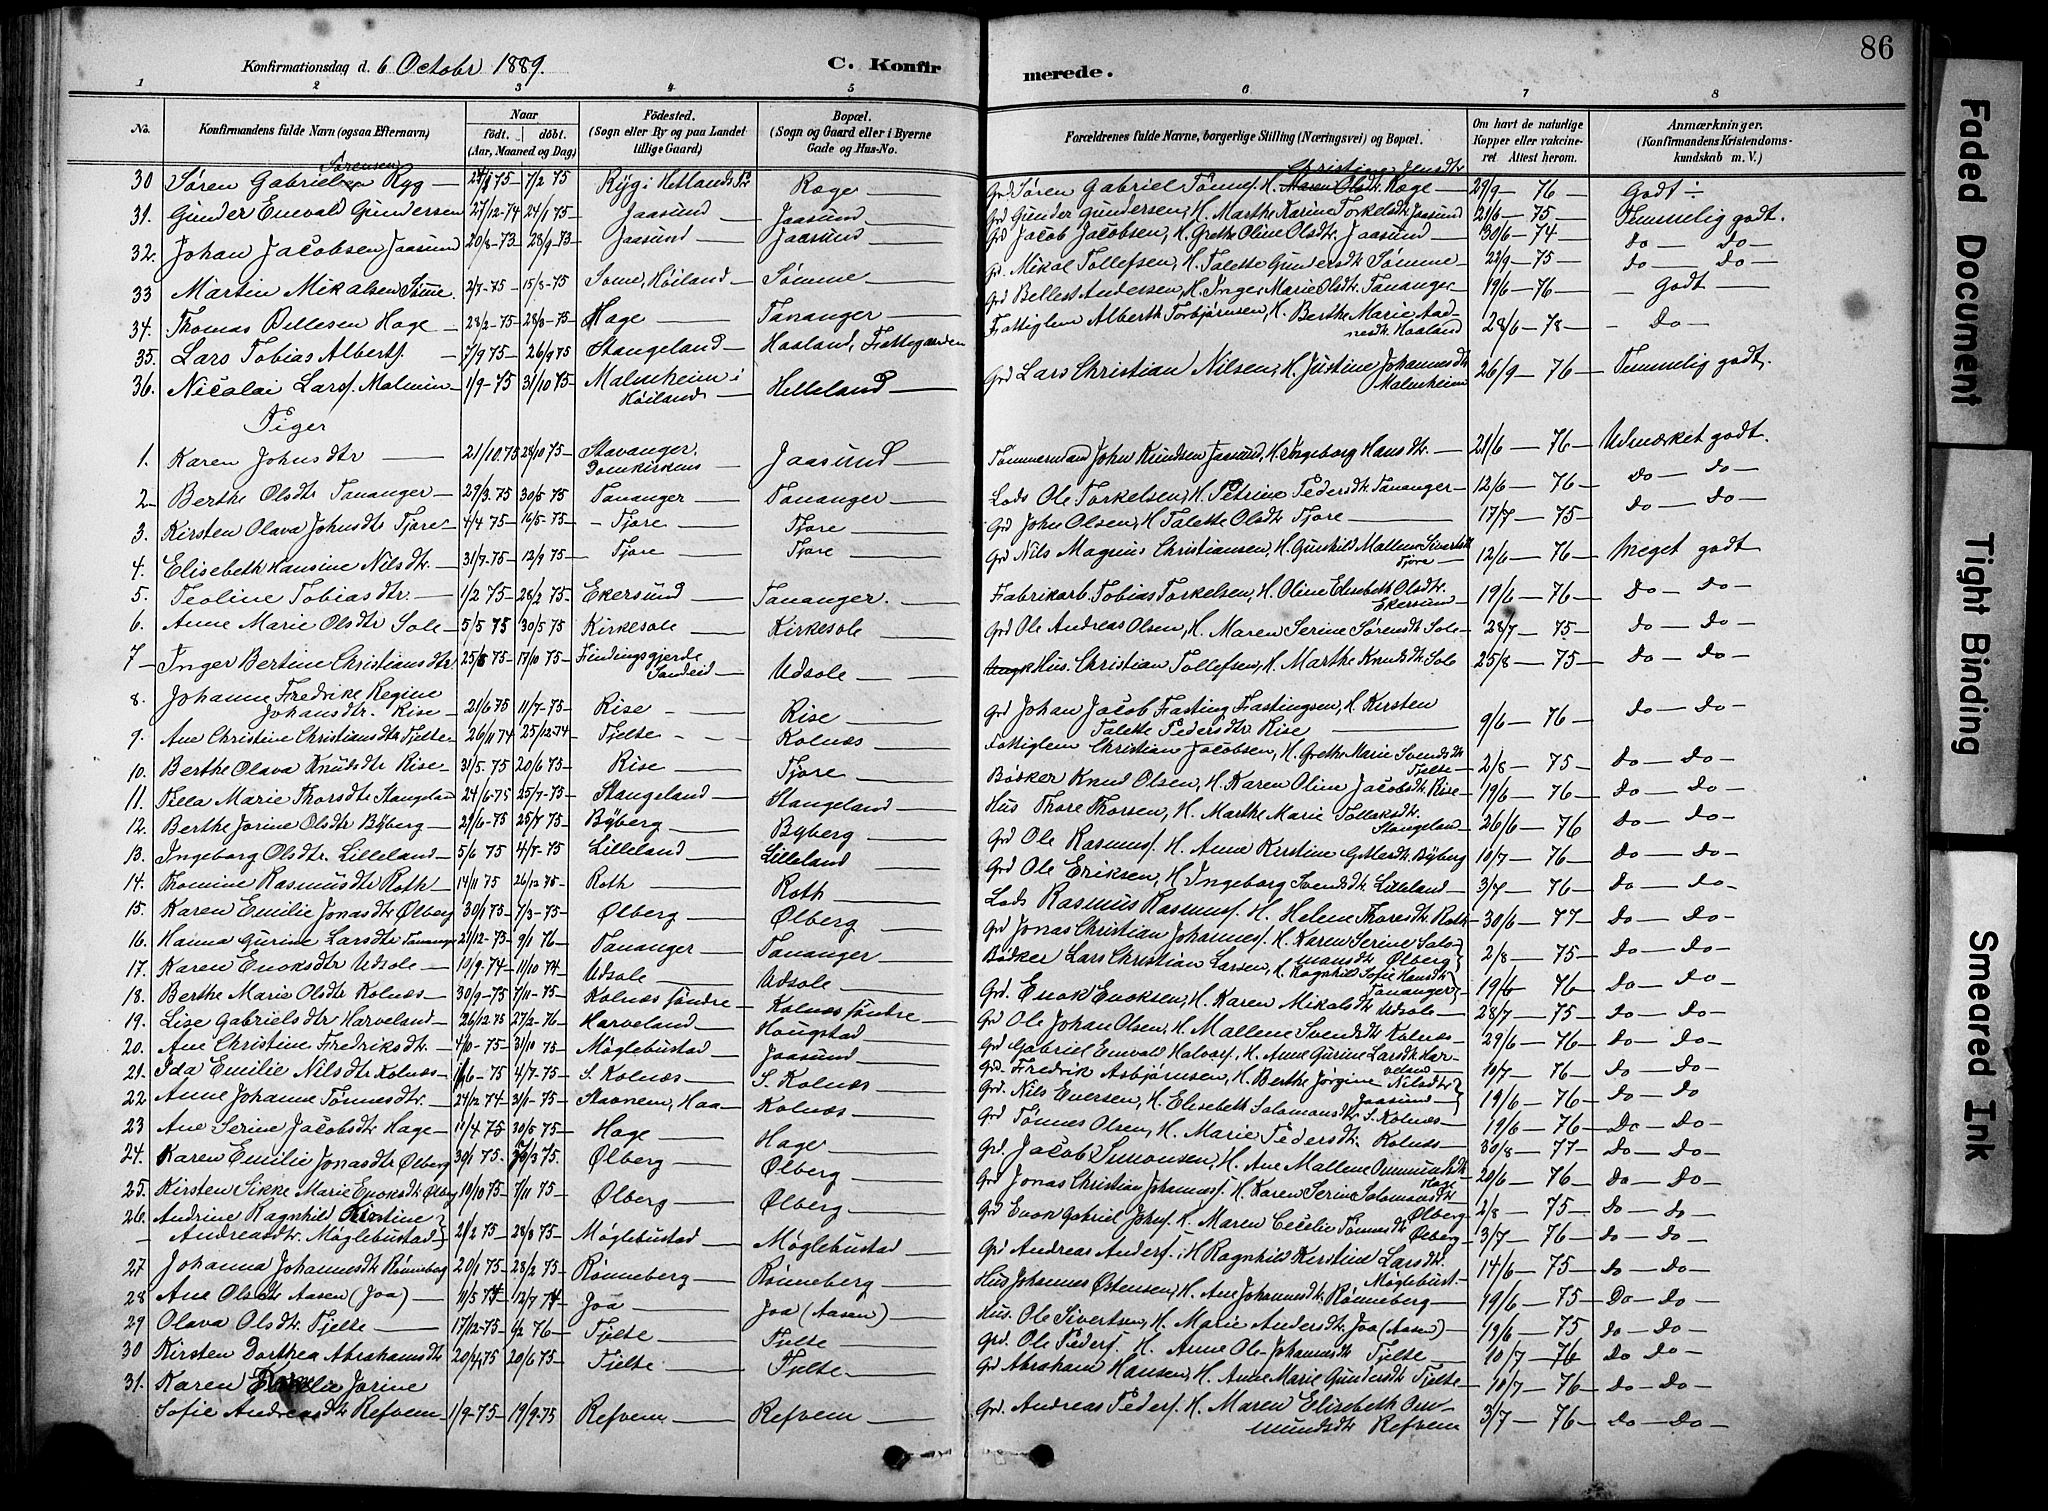 Konfirmationsdag d. 6 Octobr 1889. C. Konfirmerede. 86
1 2 3 4 5 6 7 8
No. Konfirmandens fulde Navn (ogsaa Efternavn) Naar født. døbt. (Aar, Maaned og Dag) Fødested. (Sogn eller By og paa Landet tillige Gaard) Bopæl. (Sogn og Gaard eller i Byerne Gade og Hus-No. Forældrenes fulde Navne, borgerlige Stilling (Næringsvei) og Bopæl. Om havt de naturlige Kopper eller vakcineret. Attest herom. Anmærkninger. (Konfirmandens Kristendomskundskab m. V.)
30 Søren Gabriel Sørensen Ryg 7/2 75 Ryg i Hetlands Ræge Grd Søren Gabriel Tønnes. H. Christine Jensdtr Ræge 29/9 - 76 Godt
31. Gunder Emvald Gundersen 27/12-74 24/1 75 Jaasund Jaasund Grd Gunder Gundersen, H. Marthe Karine Torkelsdtr Jaasund 21/6 - 75 Temmelig godt.
32. Johan Jacobsen Jaasund 20/8-73 28/9-73 Jaasund Jaasund Grd Jacob Jacobsen, H. Grethe Oline Olsdtr. Jaasund 30/6 - 74 Do Do
33 Martin Mikalsen Sømme 2/7-75 15/8-75 Somme, Høiland Sømme Grd Mikal Tollefsen, H. Talette Gundersdtr Sømme 22/9 - 75 Do Do
34. Thomas Bellesen Hage 28/2-75 28/3-75 Hage Tananger Grd Belles Andersen, H. Inger Marie Olsdtr. Tananger 19/6 - 76 Godt
35. Lars Tobias Alberts. 7/9 75 26/9 75 Stangeland Haaland, Fattiggaarden Fattiglem Alberth Torbjørnsen, H. Berthe Marie Aadnesdtr Haaland 28/6 - 78 Do
36. Nicolai Lars. Malmin 1/9-75 31/10 75 Malmheim i Høiland Helleland Grd Lars Christian Nilsen, H. Justine Johannesdtr Malmheim 26/9 - 76 Temmelig godt.
Piger
1. Karen Johnsdtr 21/10.75 28/10 75 Stavanger Domkirkens Jaasund Tømmermand John Knudsen Jaasund, H. Ingeborg Hansdtr. 21/6 - 76 Udmærket godt.
2 Berthe Olsdtr Tananger 29/3.75 30/5 75 Tananger Tananger Lods Ole Torkelsen, H. Petrine Pedersdtr Tananger 12/6 - 76 Do Do
3. Kirsten Olava Johnsdtr Tjore 4/4 75 16/5-75 Tjore Tjore Grd John Olsen, H Talette Olsdtr Tjore 17/7 - 75 Do Do
4. Elisebeth Hansine Nilsdtr. 31/7-75 12/9 75 Tjore Tjore Grd Nils Magnus Christiansen, H. Gunhild Mallene Sivertsdtr Tjore 12/6 - 76 Meget godt
5. Teoline Tobiasdtr. 1/2 75 28/2 75 Ekersund Tananger. Fabrikarb. Tobias Torkelsen, H. Oline Elisebeth Olsdtr. Ekersund 19/6 - 76 Do Do
6. Anne Marie Olsdtr Sole 5/5 75 30/5 75 Kirkesole Kirkesole Grd Ole Andreas Olsen, H. Maren Serine Sørensdtr Sole 28/7 - 75 Do Do
7 Inger Bertine Christiansdtr 25/8 75 17/10 75 Findingsgjerde Sandeid Udsole Hus. Christian Tollefsen, H. Marthe Knudsdtr Sole 25/8 - 75 Do Do
8. Johanne Fredrike Regine Johansdtr. Rise 21/6 75 11/7-75 Rise Rise Grd Johan Jacob Fasting Fastingsen, H. Kirsten Talette Pedersdtr Rise 9/6 - 76 Do Do
9. Ane Christine Christiansdtr Tjelte 26/11 74 25/12-74 Tjelte Kolnæs Fattiglem Christian Jacobsen, H. Grethe Marie Svendsdtr Tjelte 2/8 - 75 Do Do
10. Berthe Olava Knudsdtr Rise 31/5.75 20/6 75 Rise Tjore Bødker Knud Olsen, H. Karen Oline Jacobsdtr Rise 19/6 - 76 Do Do
11. Tilla Marie Thorsdtr Stangeland 24/6-75 25/7-75 Stangeland Stangeland Hus Thore Thorsen, H. Marthe Marie Tollaksdtr. Stangeland 26/6 - 76 Do Do
12. Berthe Jorine Olsdtr Byberg 29/6-75 25/7 75 Byberg Byberg Grd Ole Rasmus. H. Anne Kirstine Byberg 10/7 - 76 Do Do
13. Ingeborg Olsdtr. Lilleland 5/6 75 4/7-75 Lilleland Lilleland Grd Ole Eriksen, H Ingeborg Svendsdtr. Lilleland 3/7 - 76 Do Do
14. Thomine Rasmusdtr Roth 14/11 75 26/12 75 Roth Roth Lods Rasmus Rasmus. H. Helene Thoresdtr Roth 30/6 - 77 Do Do
15. Karen Emilie Jonasdtr Ølberg 30/1 75 7/3-75 Ølberg Ølberg Grd Jonas Christian Johannes. H. Karen Serine Salomansdtr Ølberg 2/8 - 75 Do Do
16. Hanna Gurine Larsdtr Tananger 21/12-75 9/1 76 Tananger Tananger Bødker Lars Christian Larsen, H. Ragnhild Sofie Hansdtr Tananger 19/6 76 Do Do
17. Karen Enoksdtr Udsole 19/9-74 11/10 74 Udsole Udsole Grd. Enok Enoksen, H. Karen Mikalsdtr Udsole 28/7 - 75 Do Do
18. Berthe Marie Olsdtr Kolnæs 30/9-75 7/11-75 Kolnæs søndre Kolnæs søndre Grd Ole Johan Olsen, H. Mallene Svendsdtr Kolnæs 29/6 - 76 Do Do
19. Lise Gabrielsdtr Harveland 26/12 75 27/2-76 Harveland Hougstad Grd Gabriel Emvald Halvors. H. Ane Gurine Larsdtr Harveland 10/7 - 76 Do Do
20. Ane Christine Fredriksdtr. 4/10-75 31/10 75 Møglebustad Jaasund Grd. Fredrik Asbjørnsen, H. Berthe Jørgine Nilsdtr Jaasund 19/6 - 76 Do Do
21. Ida Emilie Nilsdtr Kolnæs 75 4/7-75 S. Kolnæs S. Kolnæs Grd. Nils Eversen, H. Elisebeth Salamonsdtr S. Kolnæs 19/6 - 76 Do Do
22 Anne Johanne Tønnesdtr. 24/12 74 31/1-75 Staanem, Haa Kolnæs Grd Tønnes Olsen, H. Marie Pedersdtr. Kolnæs 30/8 - 77 Do Do
23 Ane Serine Jacobsdtr Hage 19/4 75 30/5 75 Hage Hage Grd. Jacob Simonsen, H. Ane Mallene Ommundsdtr Hage 20/6 - 76 Do Do
24. Karen Emilie Jonasdtr Ølberg 30/1 75 75. Ølberg Ølberg Grd Jonas Christian Johannes. H. Karen Serine Salomansdtr Ølberg 2/8 - 75 Do Do
25. Kirsten Sikke Marie Enoksdtr Ølberg 10/10 75 7/11 75 Ølberg Ølberg Grd Enok Gabriel Johs. H. Maren Cecilie Tønnesdtr Ølberg 3/7 - 76 Do Do
26. Andrine Ragnhild Kirstine Andreasdtr. Møglebustad 21/2 75 28/3 75 Møglebustad Møglebustad Grd Andreas Anders. H Ragnhild Kirstine Larsdtr. Møglebust. 14/6 - 75 Do Do
27 Johanna Johannesdtr Rønneberg 20/1 75 28/2 75 Rønneberg Rønneberg Hus Johannes Østensen, H. Ane Johannesdtr Rønneberg 19/6 - 75 Do Do
28 Ane Olsdtr Aasen (Joa) 11/5 74 12/7 74 Joa Joa (Aasen) Hus. Ole Sivertsen, H. Marie Andersdtr. Joa (Aasen) 19/6 - 75 Do Do
29 Olava Olsdtr. Tjelte 17/12-75 6/2 76 Tjelte Tjelte Grd. Ole Peders. H. Anne Ole Johannesdtr Tjelte 10/7 - 76 Do Do
30 Kirsten Dorthea Abrahamsdtr 20/4 75 20/6 75 Tjelte Tjelte Grd Abraham Hansen, H. Anne Marie Gundersdtr Tjelte 10/7 - 76 Do Do
31. Karen Jorine Sofie Andreasdtr Refvem 1/9-75 19/9-75 Refvem Refvem Grd. Andreas Peders. H. Maren Elisebeth Ommundsdtr Refvem 3/7 - 76 Do Do
Faded Document
Tight Binding
Smeared Ink